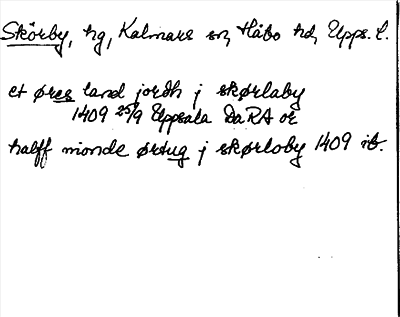 Skörby, hg, Kalmars sn, Håbo hd, Upps. l.
et øres land jordh j skørlaby
1409 25/9 Uppsala DaRA or
halff monde ørtug j skørloby 1409 ib.